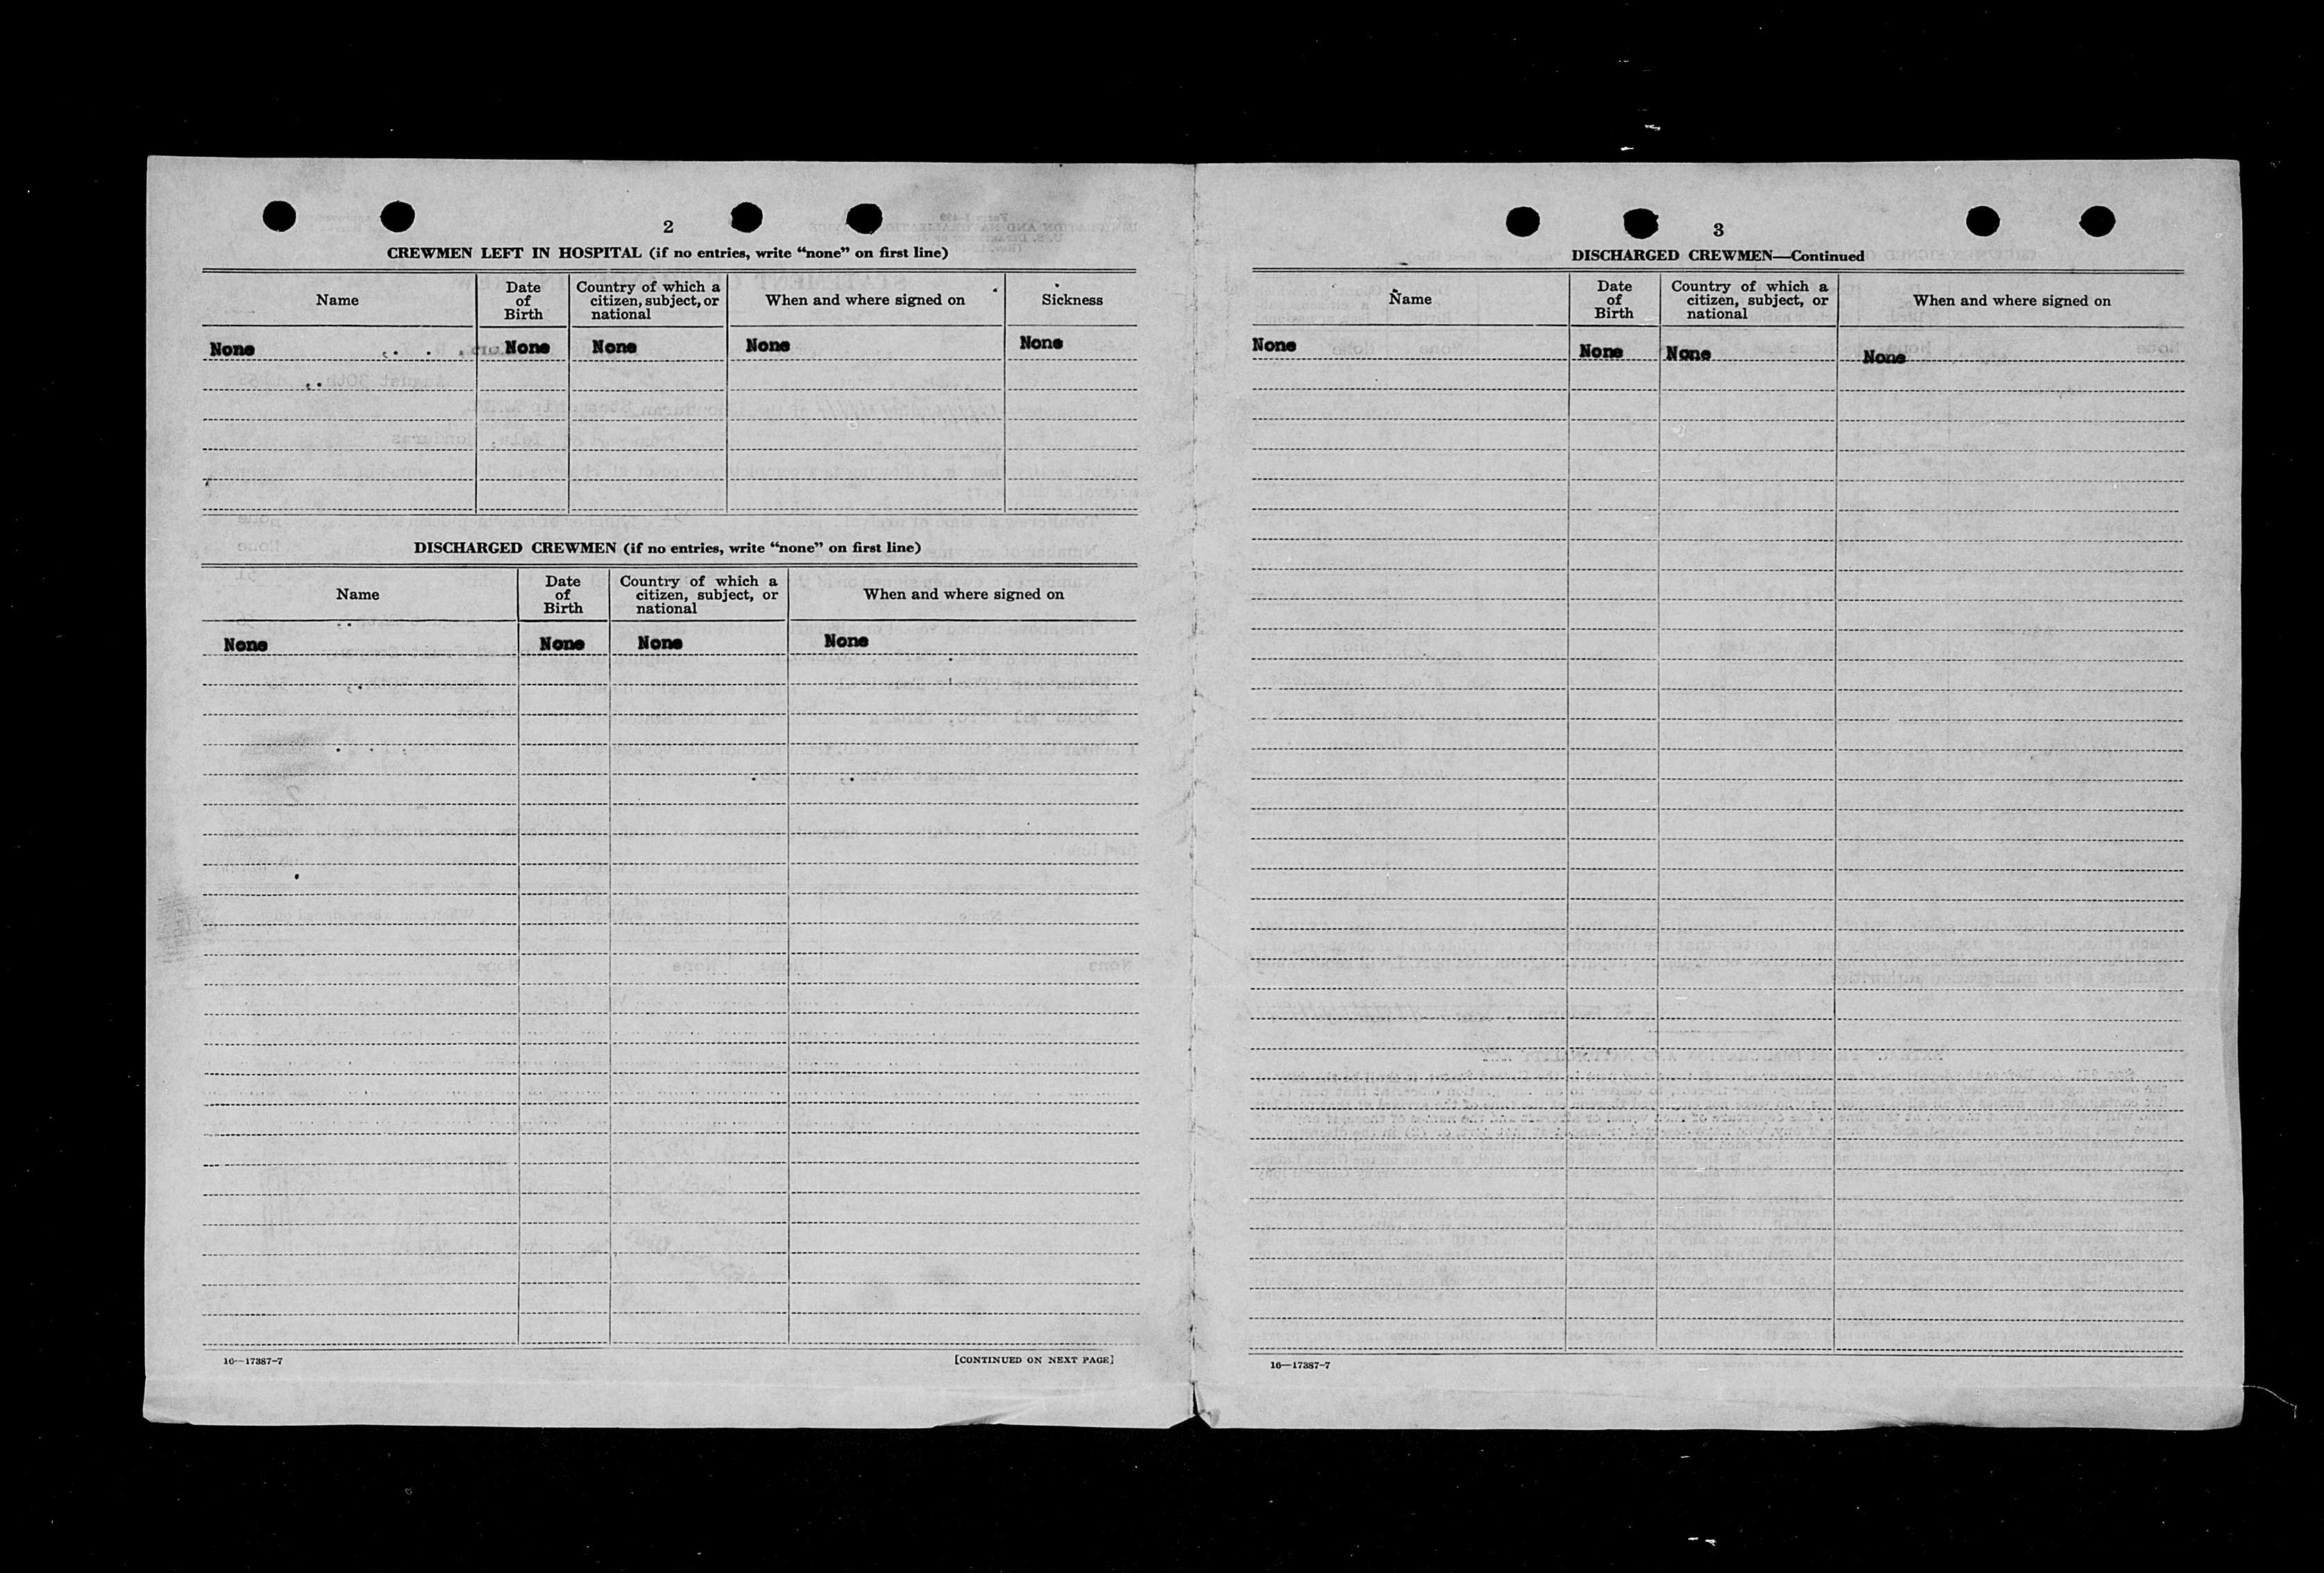 2
CREWMEN LEFT IN HOSPITAL (if no entries, write “none” on first line)
Name
Date of Birth
Country of which a citizen, subject, or national
When and where signed on
Sickness
None None None None None
DISCHARGED CREWMEN (if no entries, write “none” on first line)
Name
Date of Birth
Country of which a citizen, subject, or national
When and where signed on
None None None None
16—17387-7
[CONTINUED ON NEXT PAGE]
3
DISCHARGED CREWMEN—Continued
Name
Date of Birth
Country of which a citizen, subject, or national
When and where signed on
None None None None
16—17387-7